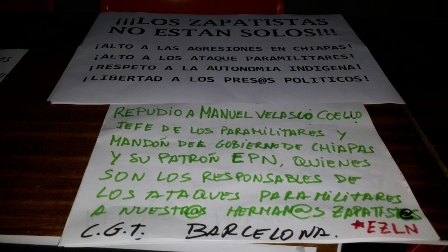 ¡¡¡LOS ZAPATISTAS
NO ESTAN SOLOS!!!
¡ALTO A LAS AGRESIONES EN CHIAPAS!
¡ALTO A LOS ATAQUE PARAMILITARES!
¡RESPETO A LA AUTONOMIA INDIGENA!
¡LIBERTAD A LOS PRES@S POLITICOS!
REPUDIO A MANUEL VELASCO COELLO
JEFE DE LOS PARAMILITARES Y
MANDÓN DEL GOBIERNO DE CHIAPAS
Y SU PATRÓN EPN, QUIENES
SON LOS RESPONSABLES DE
LOS ATAQUES PARAMILITARES
A NUESTR@S HERMAN@S ZAPATIST@S
C.G.T. BARCELONA. *EZLN